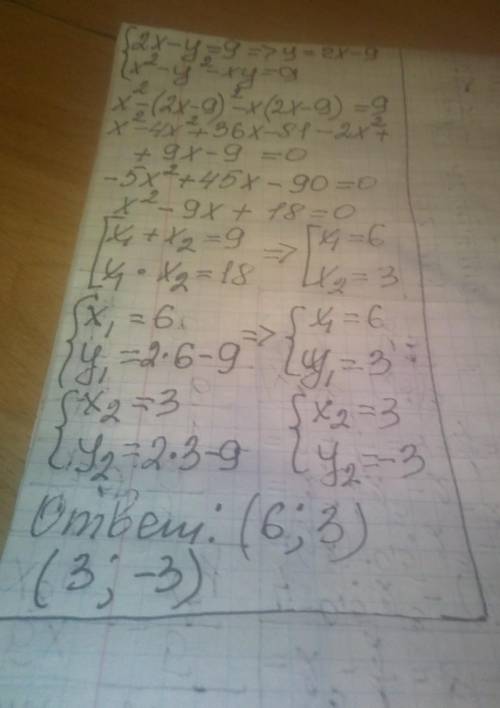 {2x-y=9=>y=2x-9
{x²-y²-xy=9
x²-(2x-9)²-x(2x-9)=9
x²-4x²+36x-81-2x²+
+9x-9=0
-5x²+45x-90=0
x²-9x+18=0
[x₁+x₂=9 => [x₁=6
[x₁·x₂=18 [x₂=3
{x₁=6 => {x₁=6
{y₁=2·6-9 {y₁=3
{x₂=3 {x₂=3
{y₂=2·3-9 {y₂=-3
Ответ: (6; 3)
(3; -3)